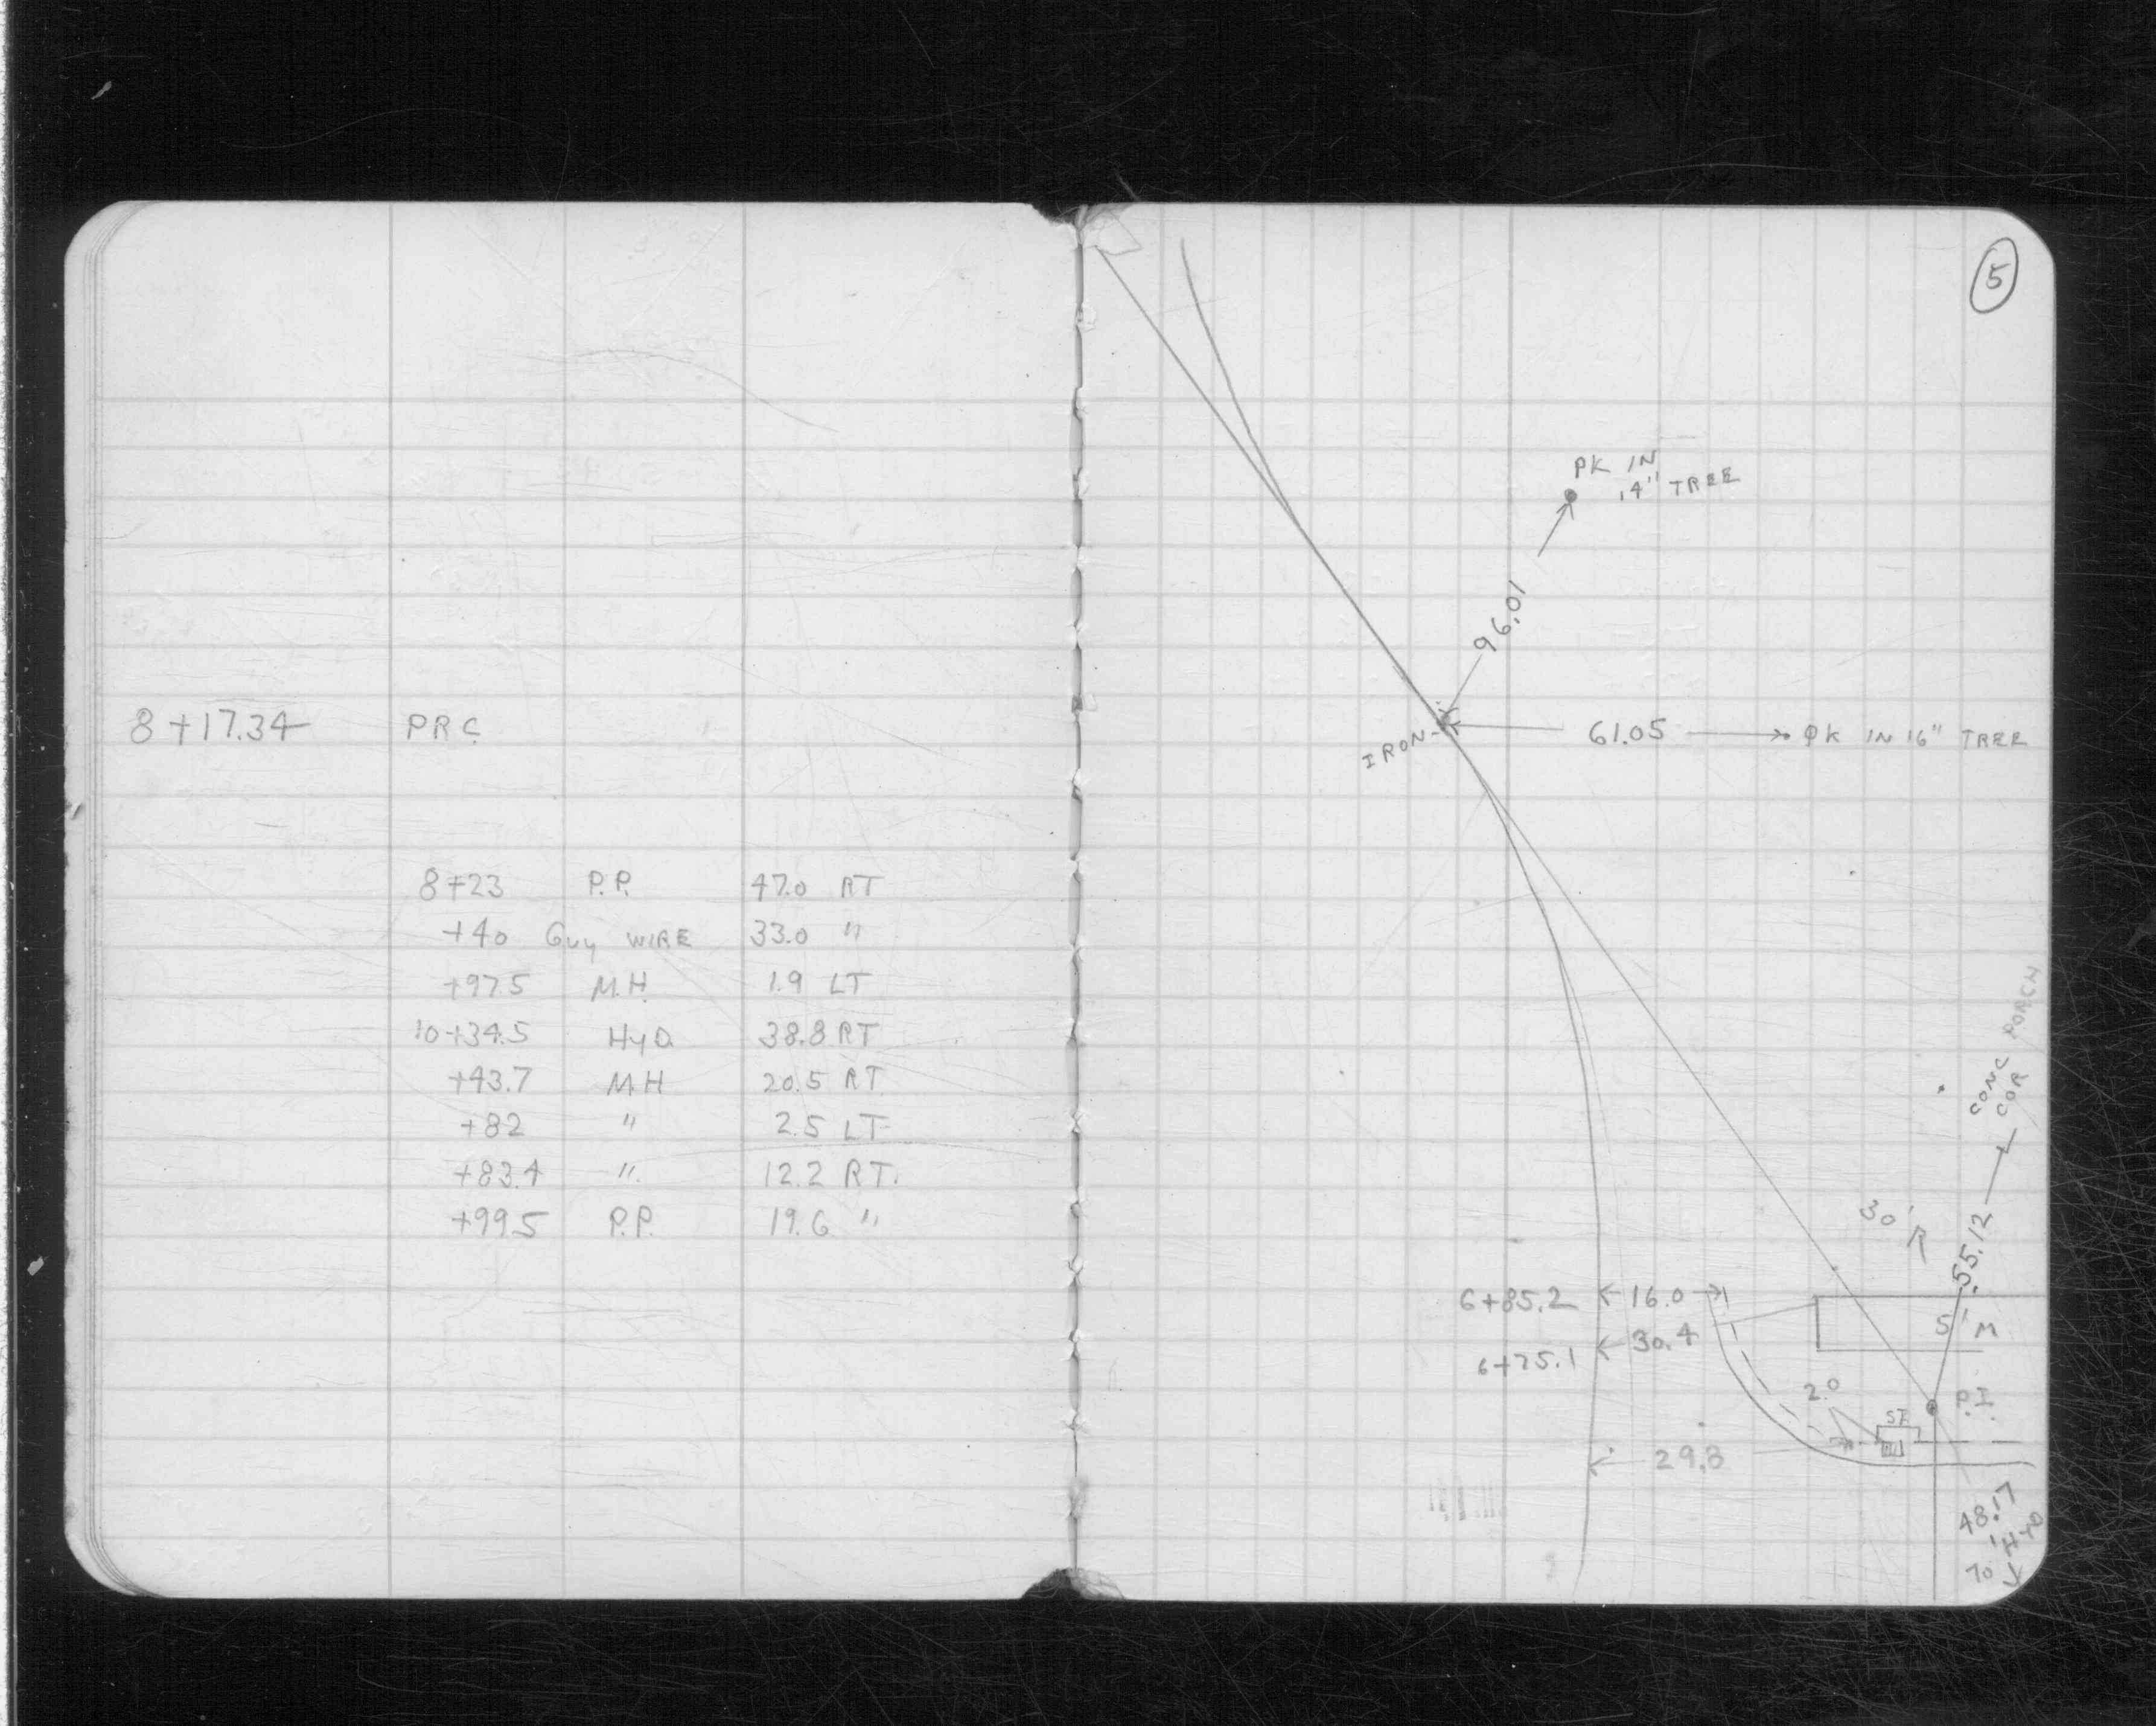 8+17.34 PRC
8+23 P.P. 47.0 RT
+40 Guy WIRE 33.0 "
+97.5 M.H. 1.9 LT
10+34.5 HyD. 38.8 RT
+43.7 M.H 20.5 RT
+82 " 2.5 LT
+83.4 " 12.2 RT.
+99.5 P.P. 19.6 "
5
PK IN
14" TREE
96.01
IRON
61.05 PK IN 16" TREE
CONC PORCH
COR
55.12
30'
6+85.2 16.0
6+75.1 30.4
5' M
2.0
P.I.
29.8
48.17
70' HYD